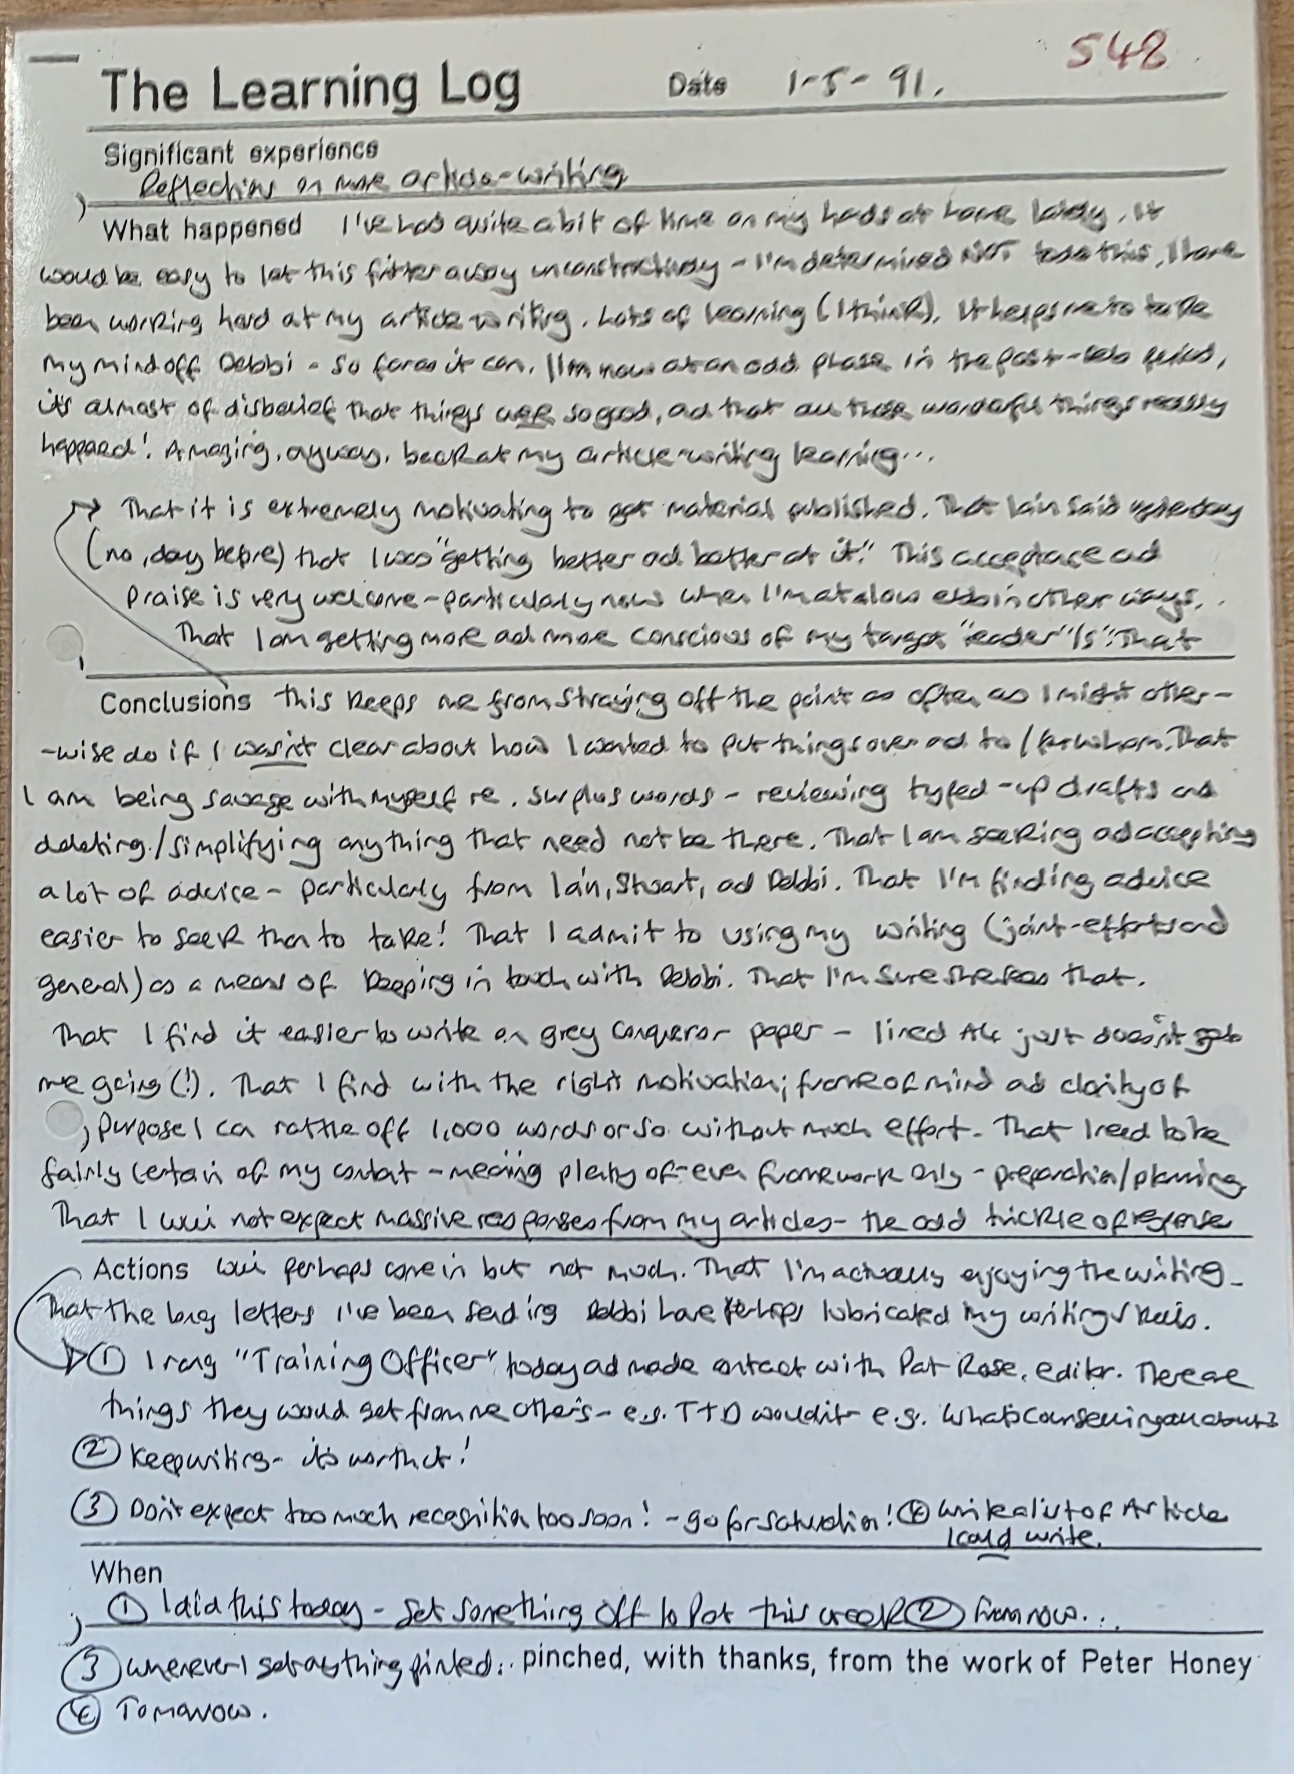 548
The Learning Log Date 1-5-91.
Significant experience
Reflections on more article-writing
What happened I've had quite a bit of time on my hads at home lately. It
would be easy to let this fritter away unconstructively - I'm determined NOT to do this, I have
been working hard at my article writing. Lots of learning (I think). It helps me to take
my mind off Debbi - so far as it can. I'm now at an odd phase in the post-
it's almost of disbelief that things were so good, ad that all those wonderful things really
happened! Amazing, anyway, back at my article-writing learning...
That it is extremely motivating to get material published. That Iain said yesterday
(no, day before) that I was "getting better ad better at it!" This acceptance ad
praise is very welcome - particularly now when I'm at a low ebb in other ways.
That I am getting more ad more conscious of my target "reader"/s". That
Conclusions this keeps me from straying off the point as often as I might other-
-wise do if I wasn't clear about how I wanted to put things over ad to/for whom. That
I am being savage with myself re. surplus words - reviewing typed-up drafts ad
deleting/simplifying anything that need not be there. That I am seeking ad accepting
a lot of advice - particularly from Iain, Stuart, ad Debbi. That I'm finding advice
easier to seek than to take! That I admit to using my writing (joint-efforts ad
general) as a means of keeping in touch with Debbi. That I'm sure she sees that.
That I find it easier to write on grey Conqueror paper - lined A4 just doesn't get
me going (!). That I find with the right motivation; frame of mind ad clarity of
purpose I can rattle off 1,000 words or so without much effort. That I need to be
fairly certain of my content - meaning plenty of - even framework only - preparation/planning
That I will not expect massive responses from my articles - the odd trickle of response
Actions will perhaps come in but not much. That I'm actually enjoying the writing -
That the long letters I've been sending Debbi have perhaps lubricated my writing skills.
① I rang "Training Officer" today ad made contact with Pat Rose, editor. There are
things they would get from me others - e.g. T+D wouldn't e.g. What's Counselling all about?
② Keep writing - it's worth it!
③ Don't expect too much recognition too soon! - go for saturation! ④ Write a list of Article
I could write.
When
① I did this today - get something off to Pat this week ② From now...
③ whenever I get anything printed... pinched, with thanks, from the work of Peter Honey
④ Tomorrow.